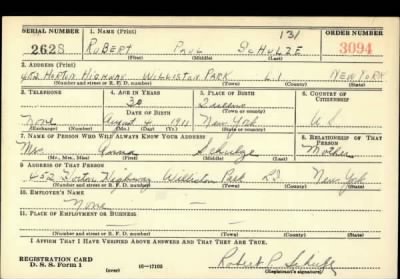 SERIAL NUMBER 1. NAME (Print) 131 ORDER NUMBER
262S ROBERT PAUL SCHULZE 3094
(First) (Middle) (Last)
2. ADDRESS (Print)
452 HORTON HIGHWAY WILLISTON PARK L.I. NEW YORK
(Number and street or R. F. D. number) (Town) (County) (State)
3. TELEPHONE 4. AGE IN YEARS 5. PLACE OF BIRTH 6. COUNTRY OF CITIZENSHIP
30 Queens
DATE OF BIRTH (Town or county)
None August 4, 1911 New York U S
(Exchange) (Number) (Mo.) (Day) (Yr.) (State or country)
7. NAME OF PERSON WHO WILL ALWAYS KNOW YOUR ADDRESS 8. RELATIONSHIP OF THAT PERSON
Mrs. Schulze Mother
(Mr., Mrs., Miss) (First) (Middle) (Last)
9. ADDRESS OF THAT PERSON
452 Horton Highway Williston Park L.I. New York
(Number and street or R. F. D. number) (Town) (County) (State)
10. EMPLOYER'S NAME
None
11. PLACE OF EMPLOYMENT OR BUSINESS
(Number and street or R. F. D. number) (Town) (County) (State)
I AFFIRM THAT I HAVE VERIFIED ABOVE ANSWERS AND THAT THEY ARE TRUE.
REGISTRATION CARD
D. S. S. Form 1 (over) 16—17105 Robert P. Schulze
(Registrant's signature)